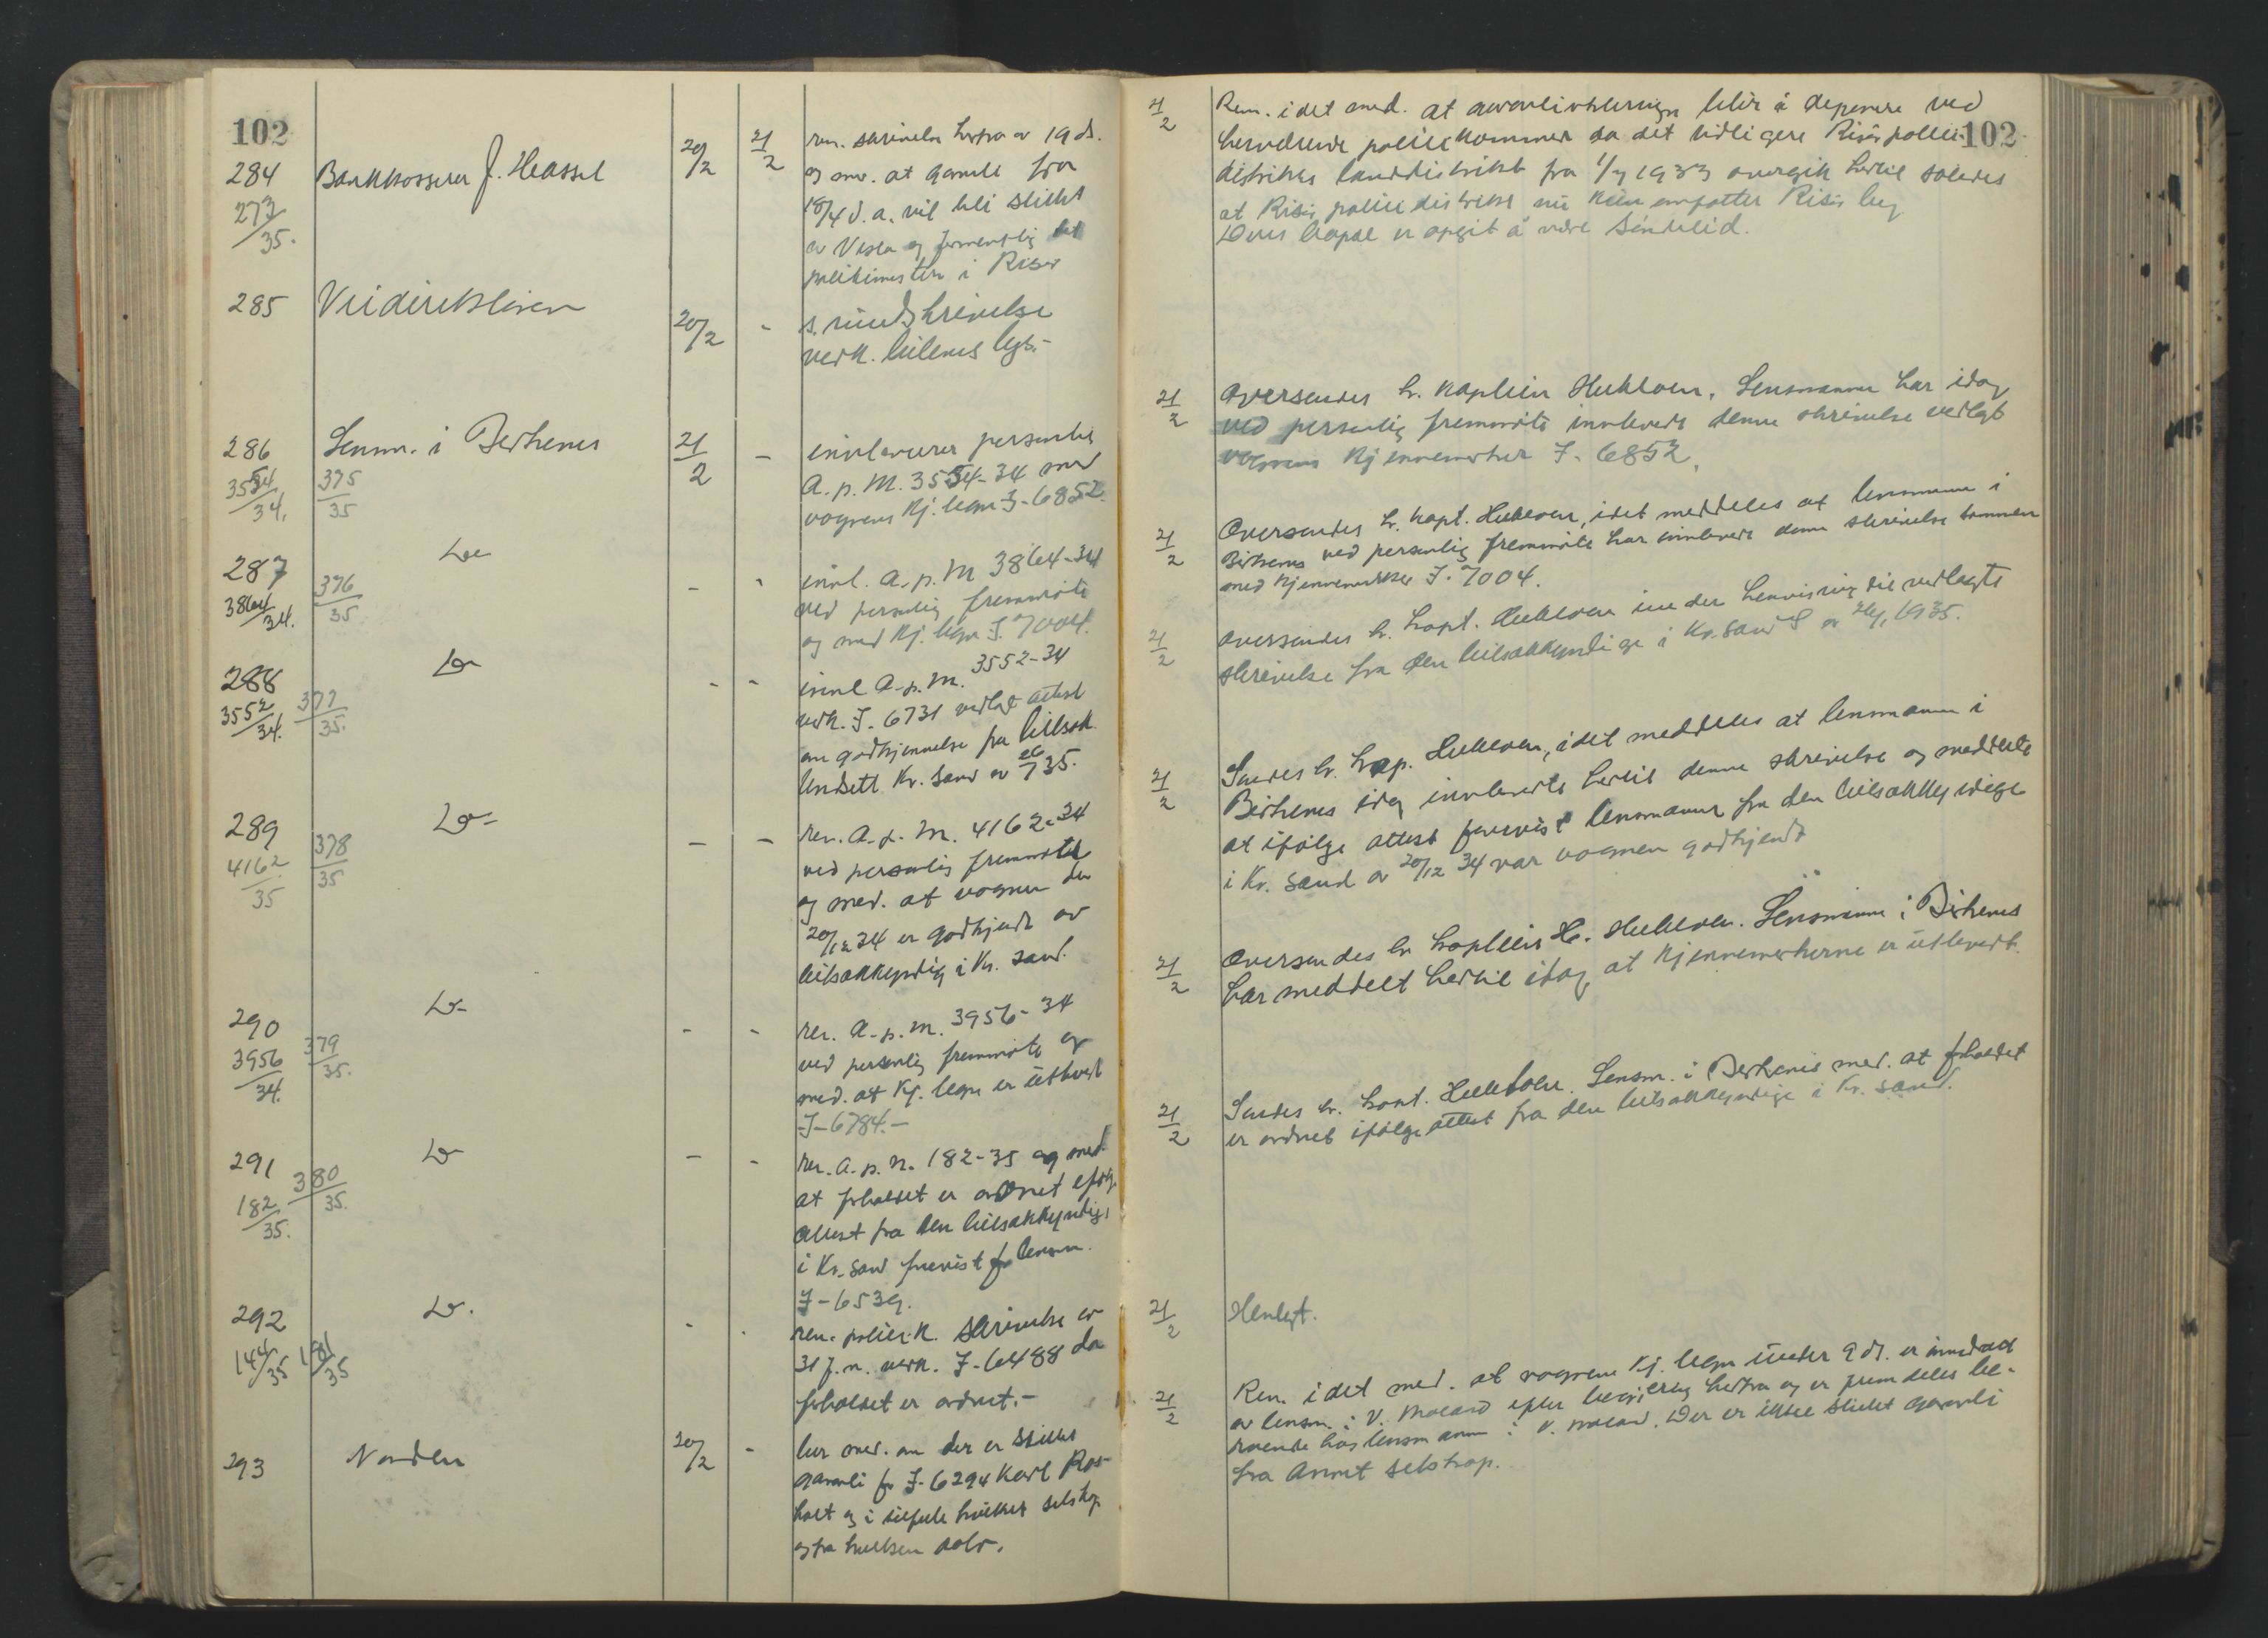 102
284 Bankkasserer J. Hassel 20/2 21/2 ren. skrivelse herfra av 19 ds.
273/35. og med. at garanti fra
15/4 d. a. vil bli stillet
av Vesta og formentlig det
politimesteren i Risør
285 Veidirektøren 20/2 - s. rundskrivelse
vedk. bilenes legt.-
286 Lensm. i Birkenes 21/2 - innleverer personlig
3554/34. 375/35 A. p. M. 3554-34 med
vognens kj. tegn I-6852.
287 Do - - innl. A. p. M 3864-34
3864/34. 376/35 ved personlig fremmøte
og med kj. tegn I. 7004.
288 Do - - innl A. p. M. 3552-34
3552/34. 377/35. vedk. I. 6731 vedlagt attest
om godkjennelse fra bilsak.
Undsett Kr. Sand av 735.
289 Do- - - ren. A. p. M. 4162-34
4162/35 378/35 ved personlig fremmøte
og med. at vognen den
20/12 34 er godkjendt av
bilsakkyndig i Kr. Sand.
290 Do- - - ren. A. p. M. 3956-34
3956/34. 379/35. ved personlig fremmøte og
med. at kj. tegn er utlevert
I-6784.-
291 Do - - ren. A. p. n. 182-35 og med.
182/35. 380/35. at forholdet er ordnet efølg.
attest fra den bilsakkyndige
i Kr. Sand forevist for lensm.
I-6539.
292 Do. - - ren. politik. skrivelse av
144/35 181/35 31 f. m. vedk. I-6488 da
forholdet er ordnet.-
293 Norden 20/2 - ber med. om der er stillet
garanti for I-6294 Karl Ros-
holt og i tilfelle hvilket selskap
og fra hvilken dato.
102
21/2 Ren. i det med. at garantierklæringen blir å deponere ved
herværende politikammer da det tidligere Risør politi-
distrikts landdistrikt fra 1/7 1933 overgik hertil således
at Risør politidistrikt nu kun omfatter Risør by
Deres bopæl er opgit å være Søndeled.
21/2 Oversendes hr. kaptein Hukloen. Lensmannen har idag
ved personlig fremmøte innlevert denne skrivelse vedlagt
vognens kjennemerker I-6852.
21/2 Oversendes hr. kapt. Hukloen, idet meddeles at lensmannen i
Birkenes ved personlig fremmøte har innlevert denne skrivelse sammen
med kjennemerker I-7004.
21/2 Oversendes hr. kapt. Hukloen under henvisning til vedlagte
skrivelse fra den bilsakkyndige i Kr. Sand S av 1935.
21/2 Sendes hr. kap. Hukloen, idet meddeles at lensmannen i
Birkenes idag innleverte hertil denne skrivelse og meddelte
at ifølge attest forevist lensmannen fra den bilsakkyndige
i Kr. Sand av 20/12 34 var vognen godkjendt
21/2 Oversendes hr kaptein H. Hukloen. Lensmannen i Birkenes
har meddelt hertil idag at kjennemerkerne er utlevert.
21/2 Sendes hr. kapt. Hukloen. Lensm. i Birkenes med. at forholdet
er ordnet ifølge attest fra den bilsakkyndige i Kr. Sand.
21/2 Henlegt.
21/2 Ren. idet med. at vognens kj. tegn under 9 ds. er inndradd
av lensm. i V. Moland efter begjæring herfra og er fremdeles be-
roende hos lensmannen i V. Moland. Der er ikke stillet garanti
fra annet selskap.